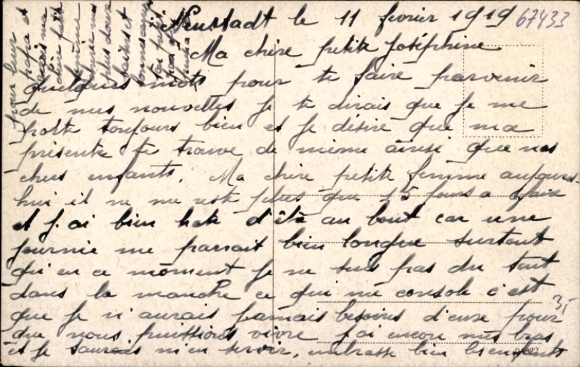 Neustadt le 11 fevrier 1919
67433
Ma chère petite Joséphine
quelques mots pour te faire parvenir
de mes nouvelles je te dirais que je me
porte toujours bien et je désire que ma
présente te trouve de même ainsi que nos
chers enfants. Ma chère petite femme aujourd-
hui il ne me reste plus que 15 jours a faire
et j'ai bien hate d'être au bout car une
journée me parrait bien longue surtout
qui en ce moment je ne suis pas du tout
dans la manche ce qui me console c'est
que je n'aurais jamais besoins d'eux pour
que nous puissions vivre j'ai encore mes bras
et je saurais m'en servir, embrasse bien les enfants
3,-